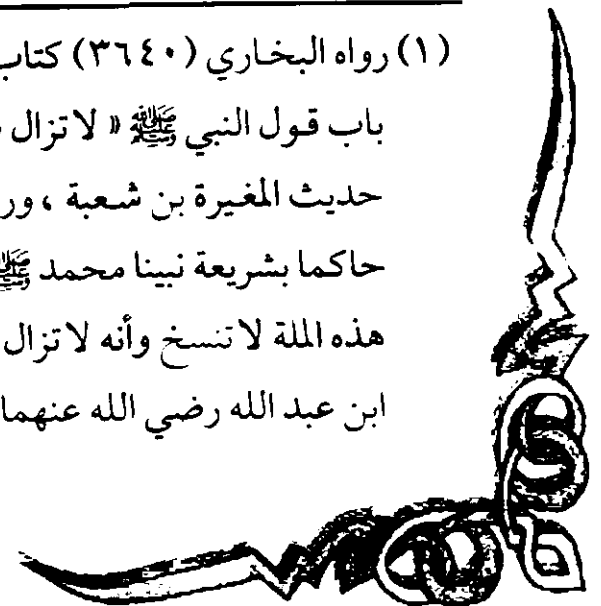 (١) رواه البخاري (٣٦٤٠) كتاب
باب قول النبي ﷺ « لا تزال
حديث المغيرة بن شعبة ، ور
حاكما بشريعة نبينا محمد ﷺ
هذه الملة لا تنسخ وأنه لا تزال
ابن عبد الله رضي الله عنهما